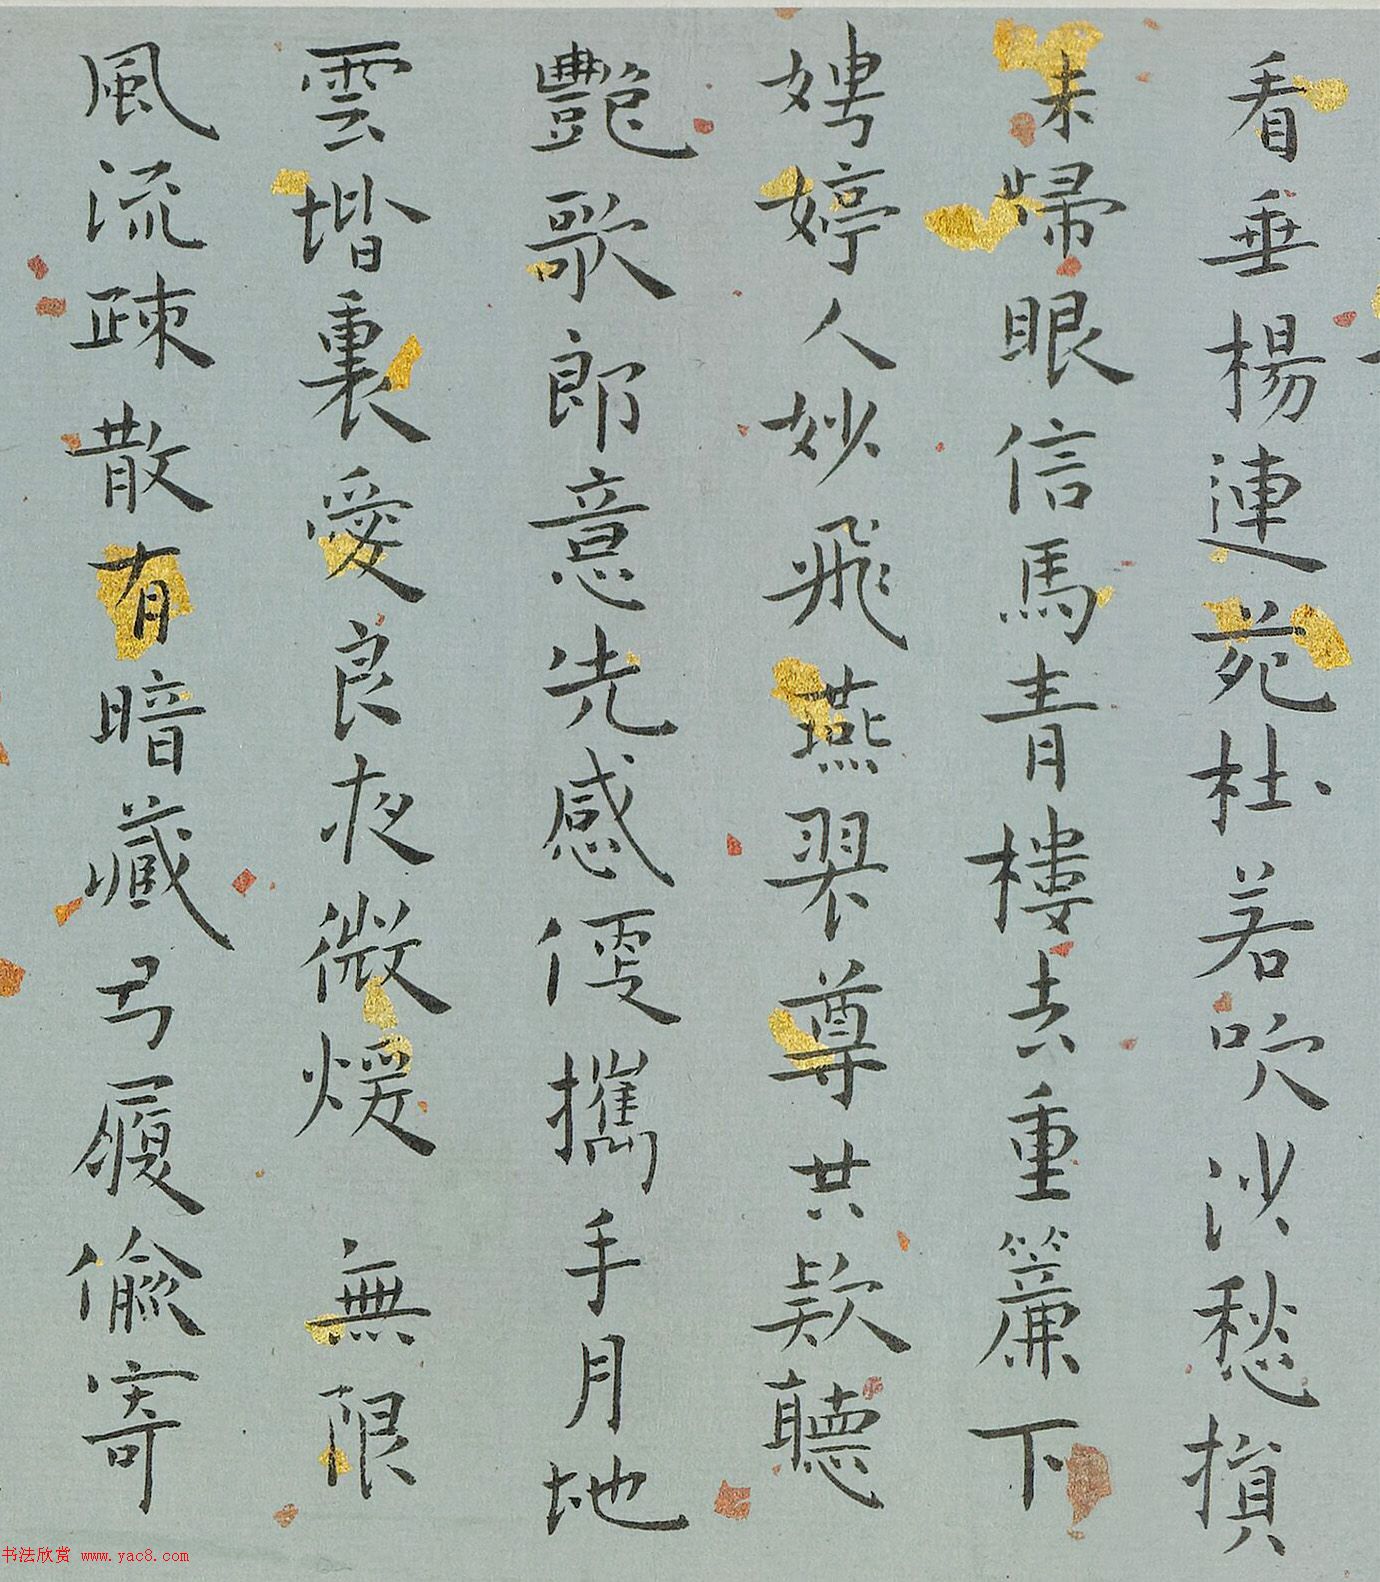 看垂楊連苑杜若吹沙愁損
未歸眼信馬青樓去重簾下
娉婷人妙飛燕翠尊共款聽
艷歌郎意先感便攜手月地
雲堦裏愛良夜微煖 無限
風流疎散有暗藏弓履偷寄
书法欣赏 www.yac8.com